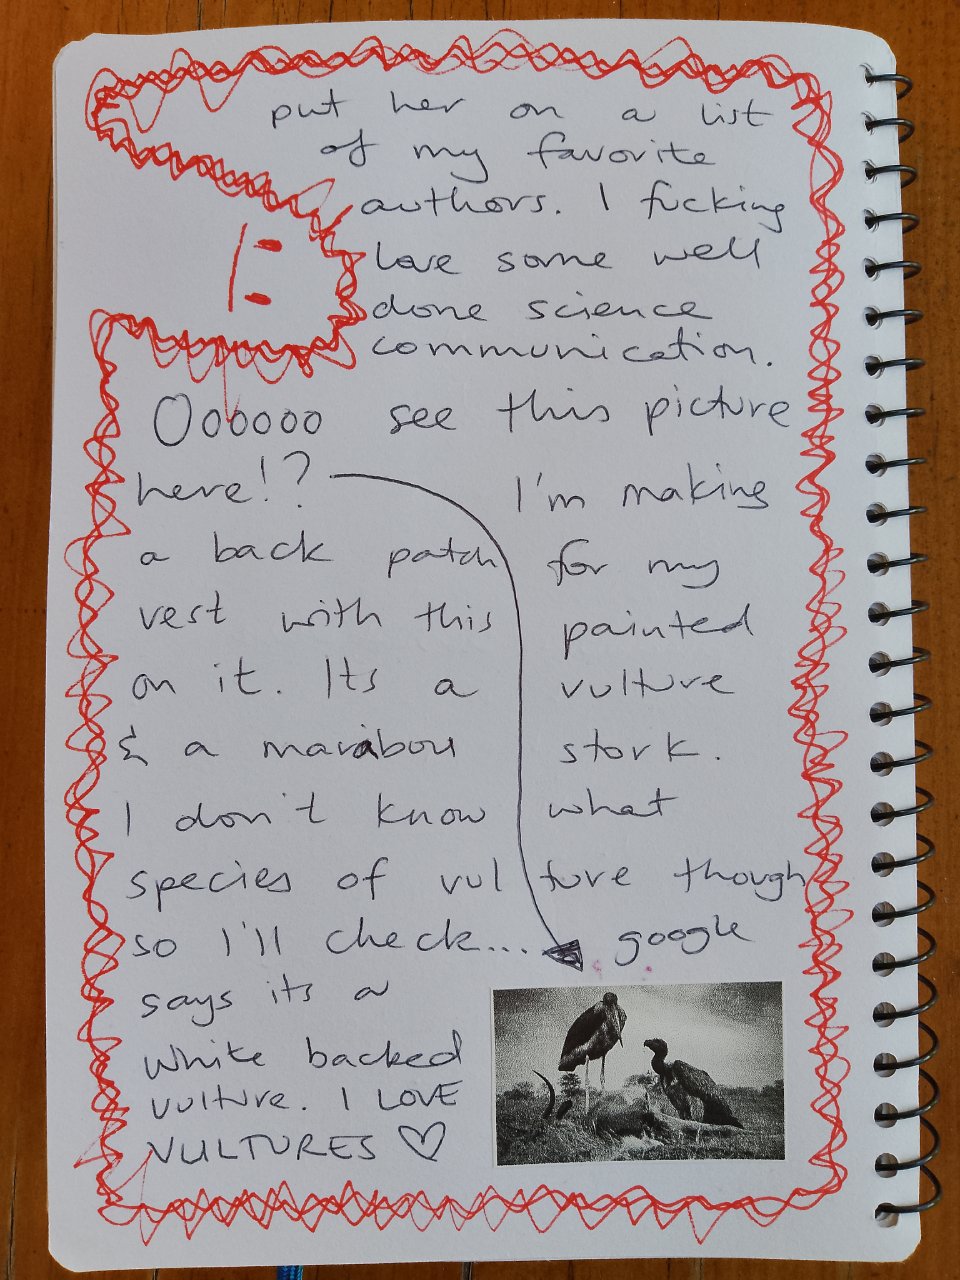 put her on a list
of my favorite
authors. I fucking
love some well
done science
communication.
Oooooo see this picture
here!? I'm making
a back patch for my
vest with this painted
on it. Its a vulture
& a marabou stork.
I don't know what
species of vulture though
so I'll check.... google
says its a
white backed
vulture. I LOVE
VULTURES ♡